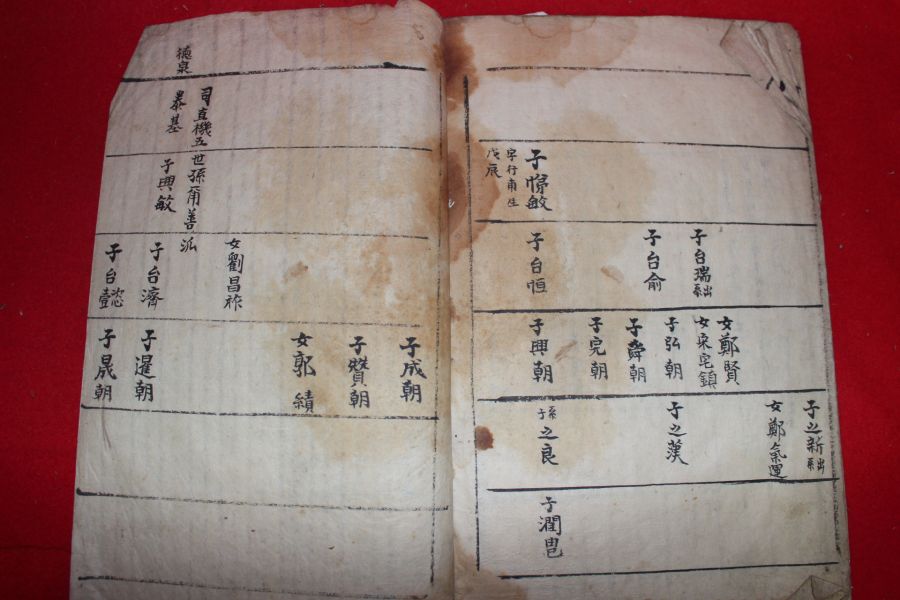 子悌敏
字行甫生
戊辰
子台瑞系出
子台俞
子台恒
女鄭賢
女宋宅鎮
子弘朝
子舜朝
子完朝
子興朝
子之新系出
女鄭氣運
子之漢
系子之良
子潤
德泉
司直機五世孫甭善派
基
子興敏
女劉昌祚
子台濟
子台懿
子成朝
子贊朝
女郭績
子暹朝
子晟朝